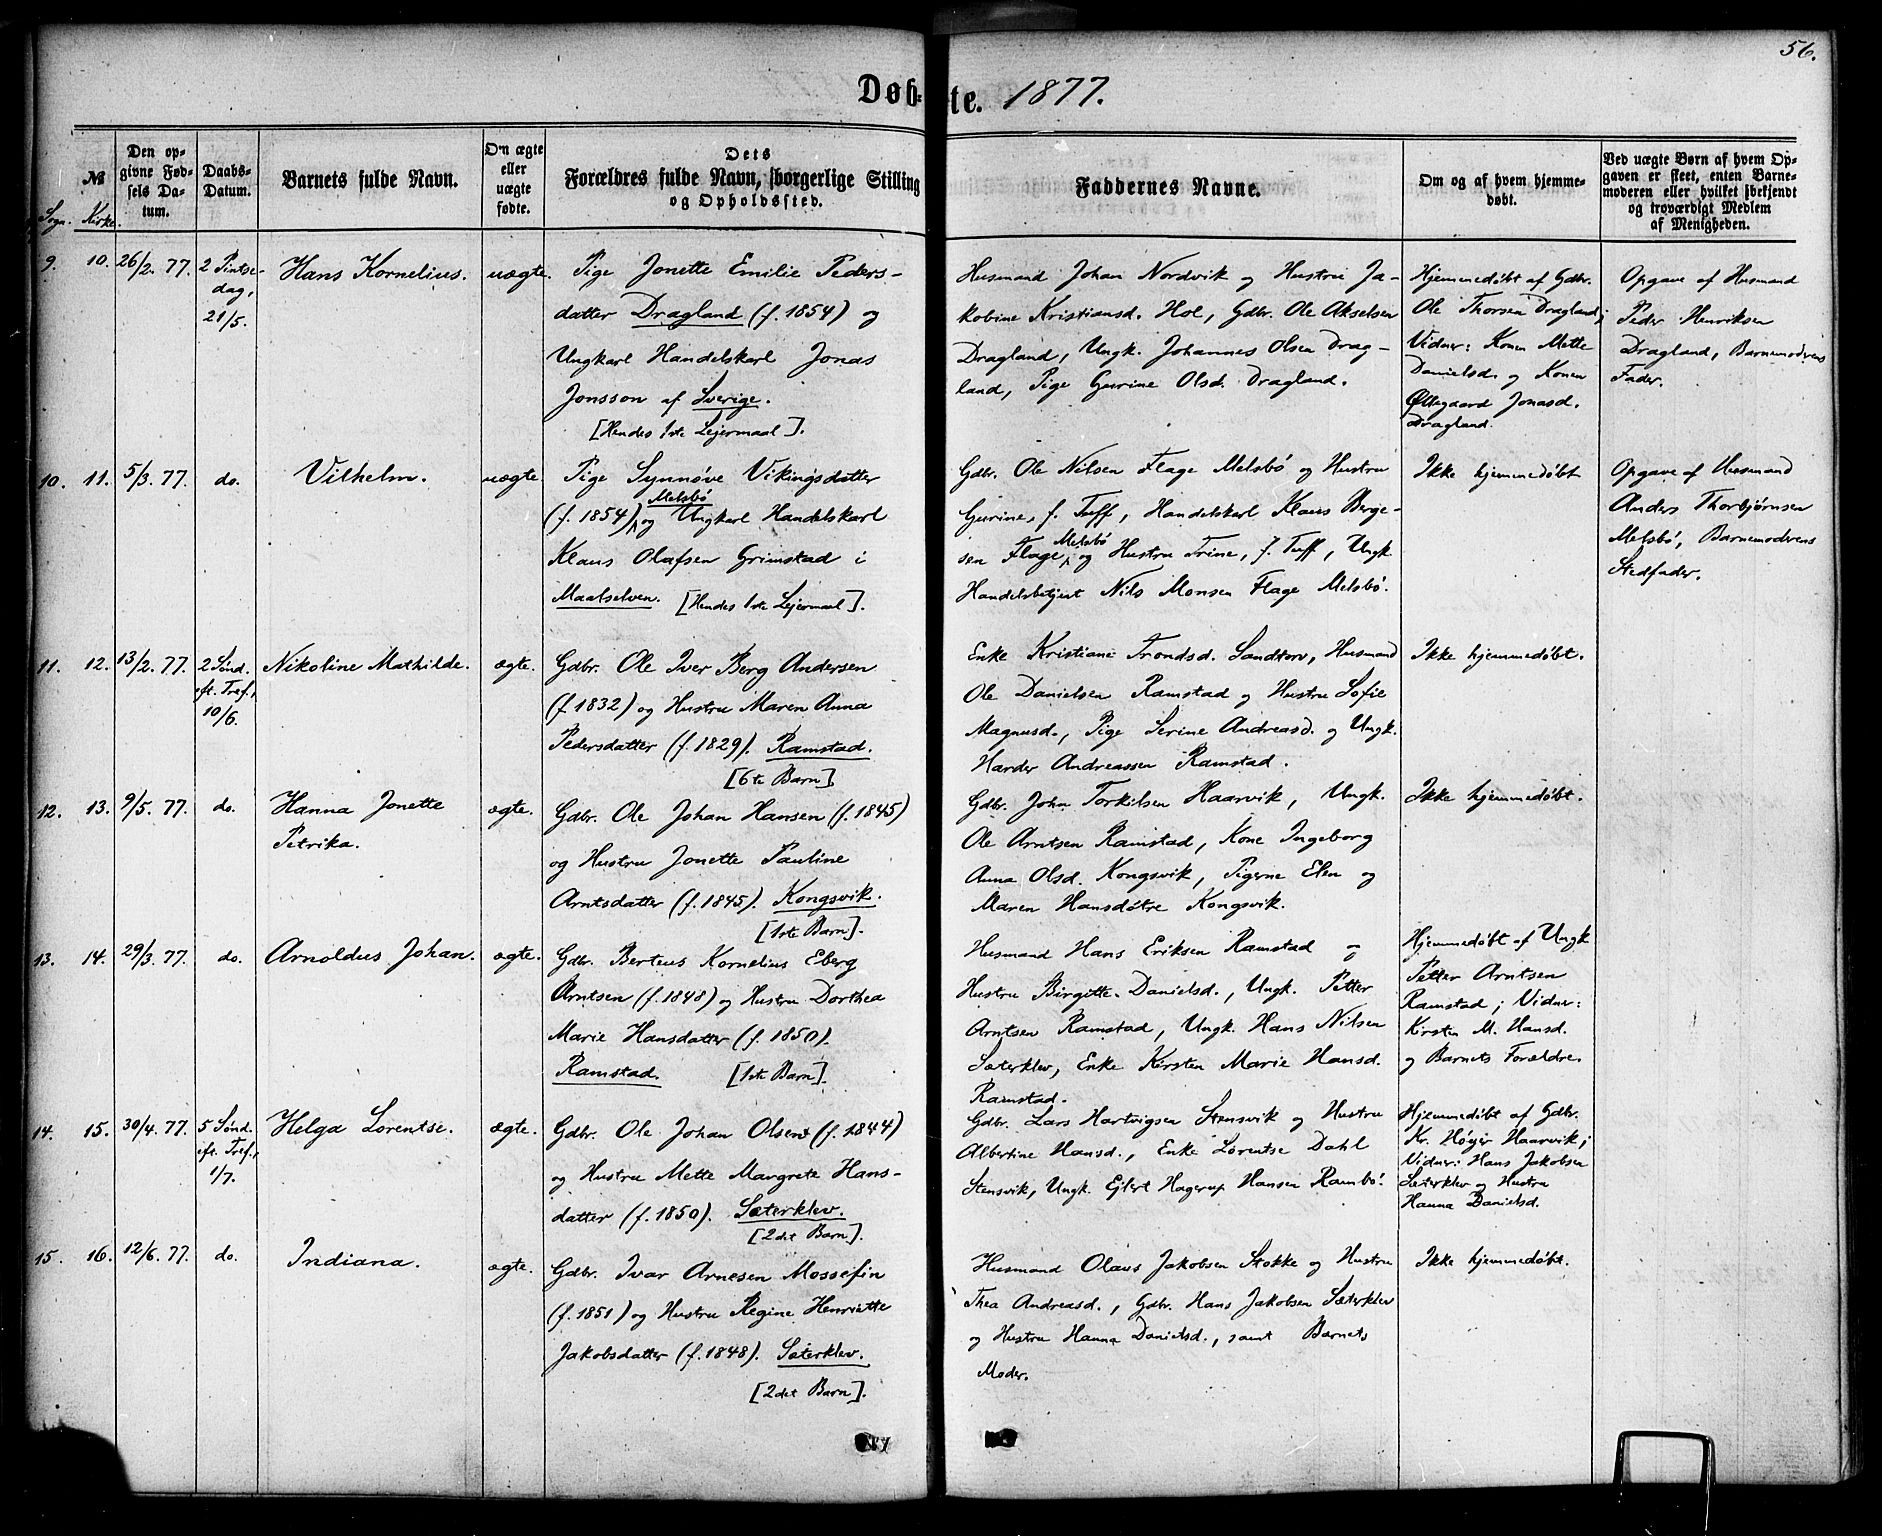 56.
Døb-te. 1877.
№
Sogn. Kirke.
Den op-
givne Fød-
sels Da-
tum.
Daabs-
Datum.
Barnets fulde Navn.
Om ægte
eller
uægte
fødte.
Dets
Forældres fulde Navn, borgerlige Stilling
og Opholdssted.
Faddernes Navne.
Om og af hvem hjemme-
døbt.
Ved uægte Børn af hvem Op-
gaven er skeet, enten Barne-
moderen eller hvilket bekjendt
og troværdigt Medlem
af Menigheden.
9. 10. 26/2. 77. 2 Pintse-
dag,
21/5.
Hans Kornelius.
uægte.
Pige Jonette Emilie Peders-
datter Dragland (f. 1854) og
Ungkarl Handelskarl Jonas
Jonsson af Sverige.
[Hendes 1ste Lejermaal].
Husmand Johan Nordvik og Hustru Ja-
kobine Kristiansd. Hol, Gdbr. Ole Akselsen
Dragland, Ungk. Johannes Olsen Drag-
land, Pige Gurine Olsd. Dragland.
Hjemmedøbt af Gdbr.
Ole Thorsen Dragland;
Vidner: Konen Mette
Danielsd. og Konen
Øllegaard Jonasd.
Dragland.
Opgave af Husmand
Peder Henriksen
Dragland, Barnemoderens
Fader.
10. 11. 5/3. 77. do.
Vilhelm.
uægte
Pige Synnøve Vikingsdatter
Melsbø
(f. 1854) og Ungkarl Handelskarl
Klaus Olafsen Grimstad i
Maalselven. [Hendes 1ste Lejermaal].
Gdbr. Ole Nilsen Flage Melsbø og Hustru
Gurine, f. Tuff, Handelskarl Klaus Berge-
Melsbø
sen Flage, og Hustru Trine, f. Tuff, Ungk.
Handelsbetjent Nils Monsen Flage Melsbø.
Ikke hjemmedøbt
Opgave af Husmand
Anders Thorbjørnsen
Melsbø, Barnemoderens
Stedfader.
11. 12. 13/2. 77. 2 Sønd.
eft. Tref.,
10/6.
Nikoline Mathilde.
ægte.
Gdbr. Ole Iver Berg Andersen
(f. 1832) og Hustru Maren Anna
Pedersdatter (f. 1829). Ramstad.
[6te Barn].
Enke Kristiane Trondsd. Sandtorv, Husmand
Ole Danielsen Ramstad og Hustru Sofie
Magnusd., Pige Serine Andreasd. og Ungk.
Harder Andreassen Ramstad.
Ikke hjemmedøbt.
12. 13. 9/5. 77. do.
Hanna Jonette
Petrika.
ægte.
Gdbr. Ole Johan Hansen (f. 1845)
og Hustru Jonette Pauline
Arntsdatter (f. 1845). Kongsvik.
[1ste Barn].
Gdbr. John Torkilsen Haarvik, Ungk.
Ole Arntsen Ramstad, Kone Ingeborg
Anna Olsd. Kongsvik, Pigerne Elen og
Maren Hansdøtre Kongsvik.
Ikke hjemmedøbt.
13. 14. 29/3. 77. do.
Arnoldus Johan.
ægte.
Gdbr. Berteus Kornelius Eberg
Arntsen (f. 1848) og Hustru Dorthea
Marie Hansdatter (f. 1850).
Ramstad. [1ste Barn].
Husmand Hans Eriksen Ramstad og
Hustru Birgitte Danielsd., Ungk. Petter
Arntsen Ramstad, Ungk. Hans Nilsen
Sæterklev, Enke Kirsten Marie Hansd.
Ramstad.
Hjemmedøbt af Ungk
Petter Arntsen
Ramstad; Vidner:
Kirsten M. Hansd.
og Barnets Forældre.
14. 15. 30/4. 77. 5 Sønd.
eft. Tref.,
1/7.
Helga Lorentse.
ægte.
Gdbr. Ole Johan Olsen (f. 1844)
og Hustru Mette Margrete Hans-
datter (f. 1850). Sæterklev.
[2det Barn].
Gdbr. Lars Hartvigsen Stensvik og Hustru
Albertine Hansd., Enke Lorentse Dahl
Stensvik, Ungk. Ejlert Hagerup Hansen Rambø.
Hjemmedøbt af Gdbr.
Kr. Høyer Haarvik;
Vidner: Hans Jakobsen
Sæterklev og Hustru
Hanna Danielsd.
15. 16. 12/6. 77. do.
Indiana.
ægte.
Gdbr. Ivar Arnesen Mossefin
(f. 1851) og Hustru Regine Henriette
Jakobsdatter (f. 1848). Sæterklev.
[2det Barn].
Husmand Olaus Jakobsen Stokke og Hustru
Thea Andreasd., Gdbr. Hans Jakobsen Sæterklev
og Hustru Hanna Danielsd., samt Barnets
Moder.
Ikke hjemmedøbt.